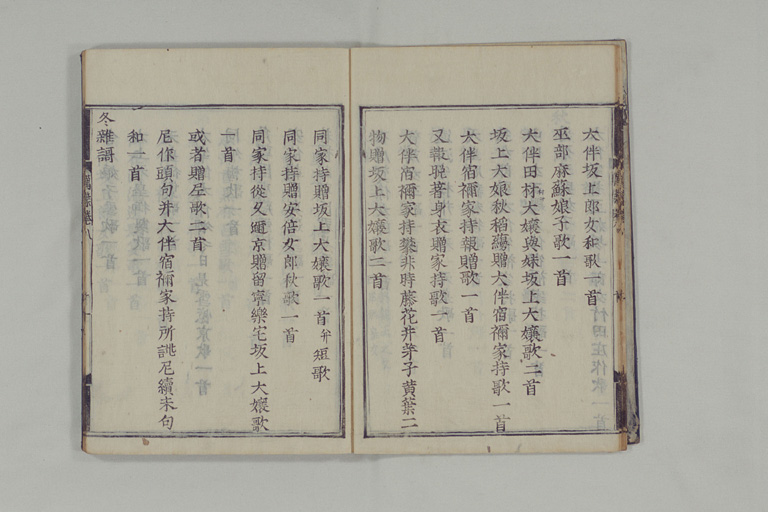 大伴坂上郎女和歌一首
巫部麻蘇娘子歌一首
大伴田村大嬢與妹坂上大嬢歌二首
坂上大娘秋稻蘰贈大伴宿禰家持歌一首
大伴宿禰家持報贈歌一首
又報脱著身衣贈家持歌一首
大伴宿禰家持攀非時藤花并芽子黄葉二
物贈坂上大嬢歌二首
同家持贈坂上大嬢歌一首并短歌
同家持贈安倍女郎秋歌一首
同家持從久邇京贈留寧樂宅坂上大嬢歌
一首
或者贈尼歌二首
尼作頭句并大伴宿禰家持所誂尼續末句
和一首
冬雜謌